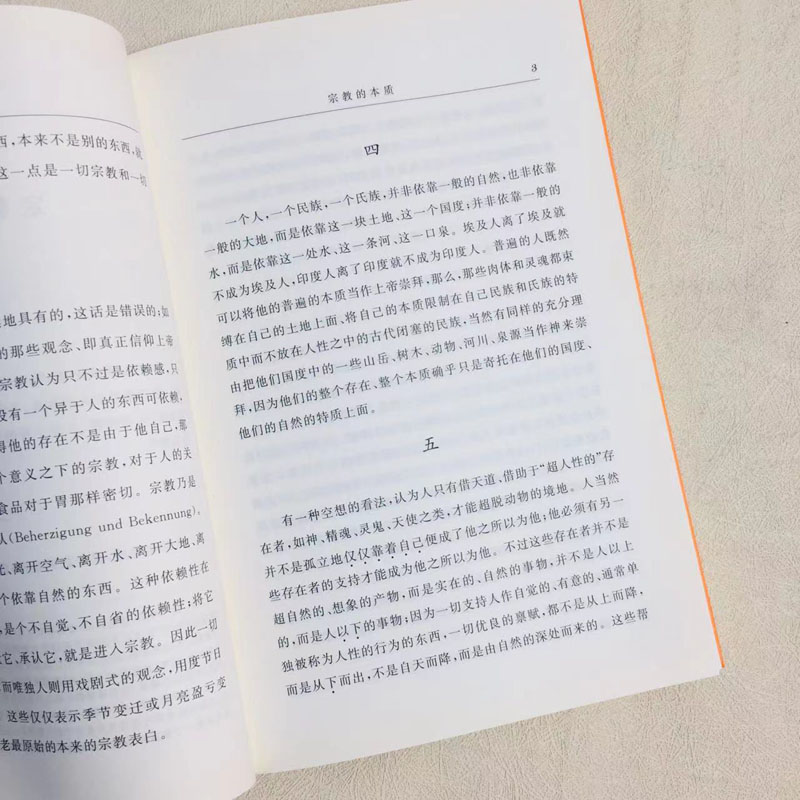 西,本来不是别的东西,就
这一点是一切宗教和一切
地具有的,这话是错误的;如
的那些观念、即真正信仰上帝
宗教认为只不过是依赖感,只
没有一个异于人的东西可依赖,
得他的存在不是由于他自己,那
个意义之下的宗教,对于人的关
食品对于胃那样密切。宗教乃是
人(Beherzigung und Bekennung)。
光、离开空气、离开水、离开大地、离
个依靠自然的东西。这种依赖性在
是个不自觉、不自省的依赖性;将它
它、承认它,就是进入宗教。因此一切
而唯独人则用戏剧式的观念,用度节日
这些仅仅表示季节变迁或月亮盈亏变
老最原始的本来的宗教表白。
宗教的本质
3
四
一个人,一个民族,一个氏族,并非依靠一般的自然,也非依靠
一般的大地,而是依靠这一块土地、这一个国度;并非依靠一般的
水,而是依靠这一处水、这一条河、这一口泉。埃及人离了埃及就
不成为埃及人,印度人离了印度就不成为印度人。普遍的人既然
可以将他的普遍的本质当作上帝崇拜,那么,那些肉体和灵魂都束
缚在自己的土地上面、将自己的本质限制在自己民族和氏族的特
质中而不放在人性之中的古代闭塞的民族,当然有同样的充分理
由把他们国度中的一些山岳、树木、动物、河川、泉源当作神来崇
拜,因为他们的整个存在、整个本质确乎只是寄托在他们的国度、
他们的自然的特质上面。
五
有一种空想的看法,认为人只有借天道、借助于“超人性的”存
在者,如神、精魂、灵鬼、天使之类,才能超脱动物的境地。人当然
并不是孤立地仅仅靠着自己便成了他之所以为他;他必须有另一
些存在者的支持才能成为他之所以为他。不过这些存在者并不是
超自然的、想象的产物,而是实在的、自然的事物,并不是人以上
的,而是人以下的事物;因为一切支持人作自觉的、有意的、通常单
独被称为人性的行为的东西,一切优良的禀赋,都不是从上而降,
而是从下而出,不是自天而降,而是由自然的深处而来的。这些帮